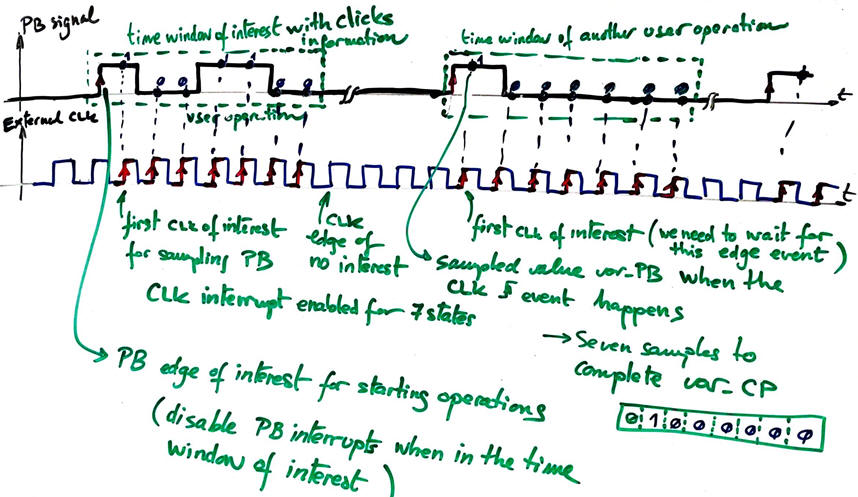 PB signal
time window of interest with clicks
information
time window of another user operation
1 0 0 1 1 0 0
1 0 0 0 0 0 0
t
External CLK
user operation
t
first CLK of interest
for sampling PB
CLK
edge of
no interest
CLK interrupt enabled for 7 states
first CLK of interest (we need to wait for
this edge event)
sampled value var_PB when the
CLK event happens
→ Seven samples to
complete var_CP
0 1 0 0 0 0 0 0
PB edge of interest for starting operations
(disable PB interrupts when in the time
window of interest)